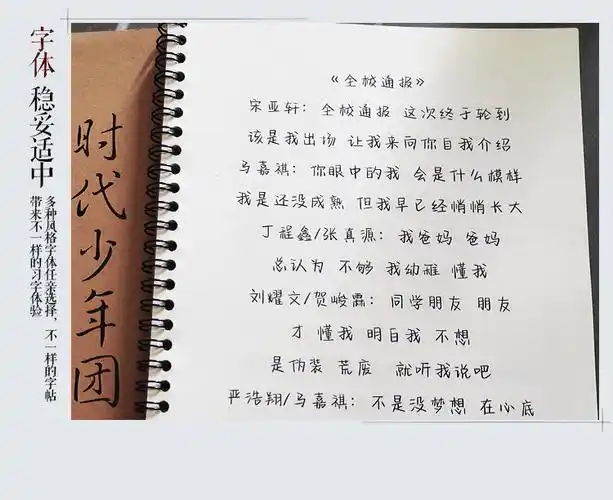 字体 稳妥适中
多种风格字体任亲选择，不一样的字帖
带来不一样的习字体验
时代少年团
《全校通报》
宋亚轩：全校通报 这次终于轮到
该是我出场 让我来向你自我介绍
马嘉祺：你眼中的我 会是什么模样
我是还没成熟 但我早已经悄悄长大
丁程鑫/张真源：我爸妈 爸妈
总认为 不够 我幼稚 懂我
刘耀文/贺峻霖：同学朋友 朋友
才 懂我 明白我 不想
是伪装 荒废 就听我说吧
严浩翔/马嘉祺：不是没梦想 在心底